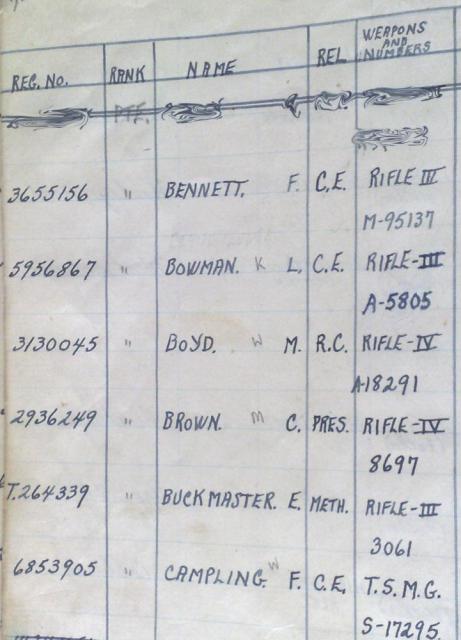 REG. NO. RANK NAME REL WEAPONS AND NUMBERS
PTE.
3655156 " BENNETT. F. C.E. RIFLE III
M-95137
5956867 " BOWMAN. K L. C.E. RIFLE-III
A-5805
3130045 " BOYD. W M. R.C. RIFLE-IV
A-18291
2936249 " BROWN. M C. PRES. RIFLE-IV
8697
T.264339 " BUCKMASTER. E. METH. RIFLE-III
3061
6853905 " CAMPLING. W F. C.E. T.S.M.G.
S-17295.